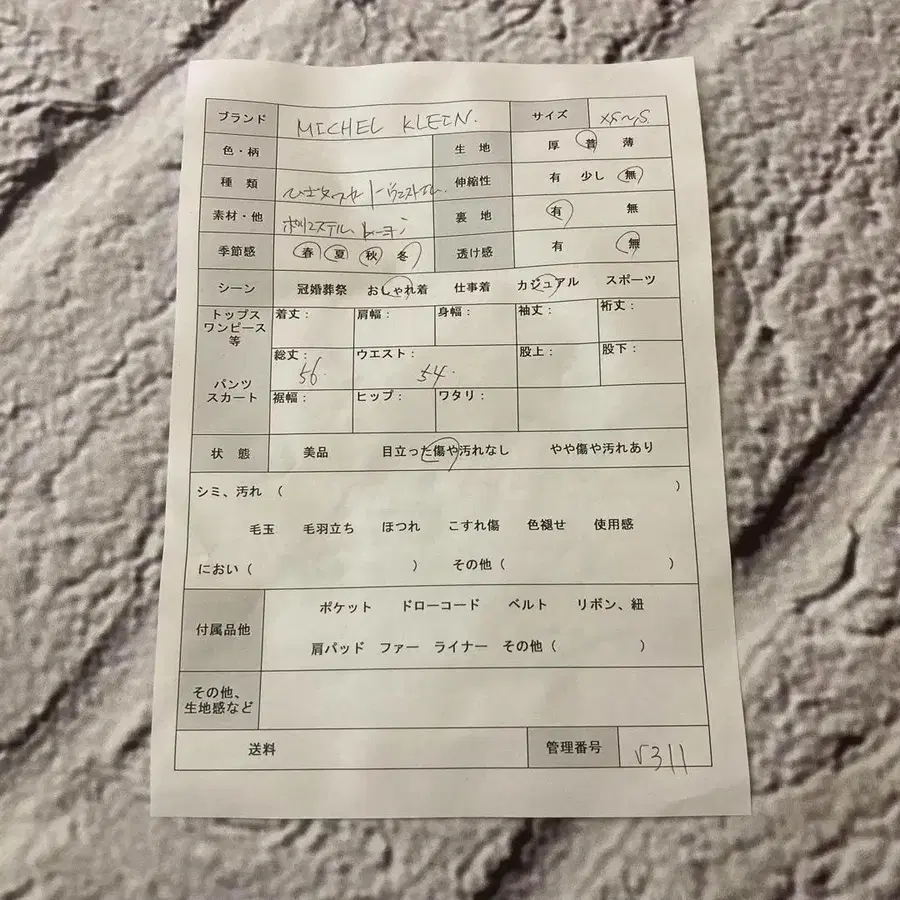 ブランド MICHEL KLEIN. サイズ XS~S
色・柄 生 地 厚 普 薄
種 類 伸縮性 有 少し 無
素材・他 ポリエステル、レーヨン 裏 地 有 無
季節感 春 夏 秋 冬 透け感 有 無
シーン 冠婚葬祭 おしゃれ着 仕事着 カジュアル スポーツ
トップス ワンピース 等 着丈: 肩幅: 身幅: 袖丈: 裄丈:
パンツ スカート 総丈: 56. ウエスト: 54. 股上: 股下:
裾幅: ヒップ: ワタリ:
状 態 美品 目立った傷や汚れなし やや傷や汚れあり
シミ、汚れ ( )
毛玉 毛羽立ち ほつれ こすれ傷 色褪せ 使用感
におい ( ) その他 ( )
付属品他 ポケット ドローコード ベルト リボン、紐
肩パッド ファー ライナー その他 ( )
その他、
生地感など
送料 管理番号 r311